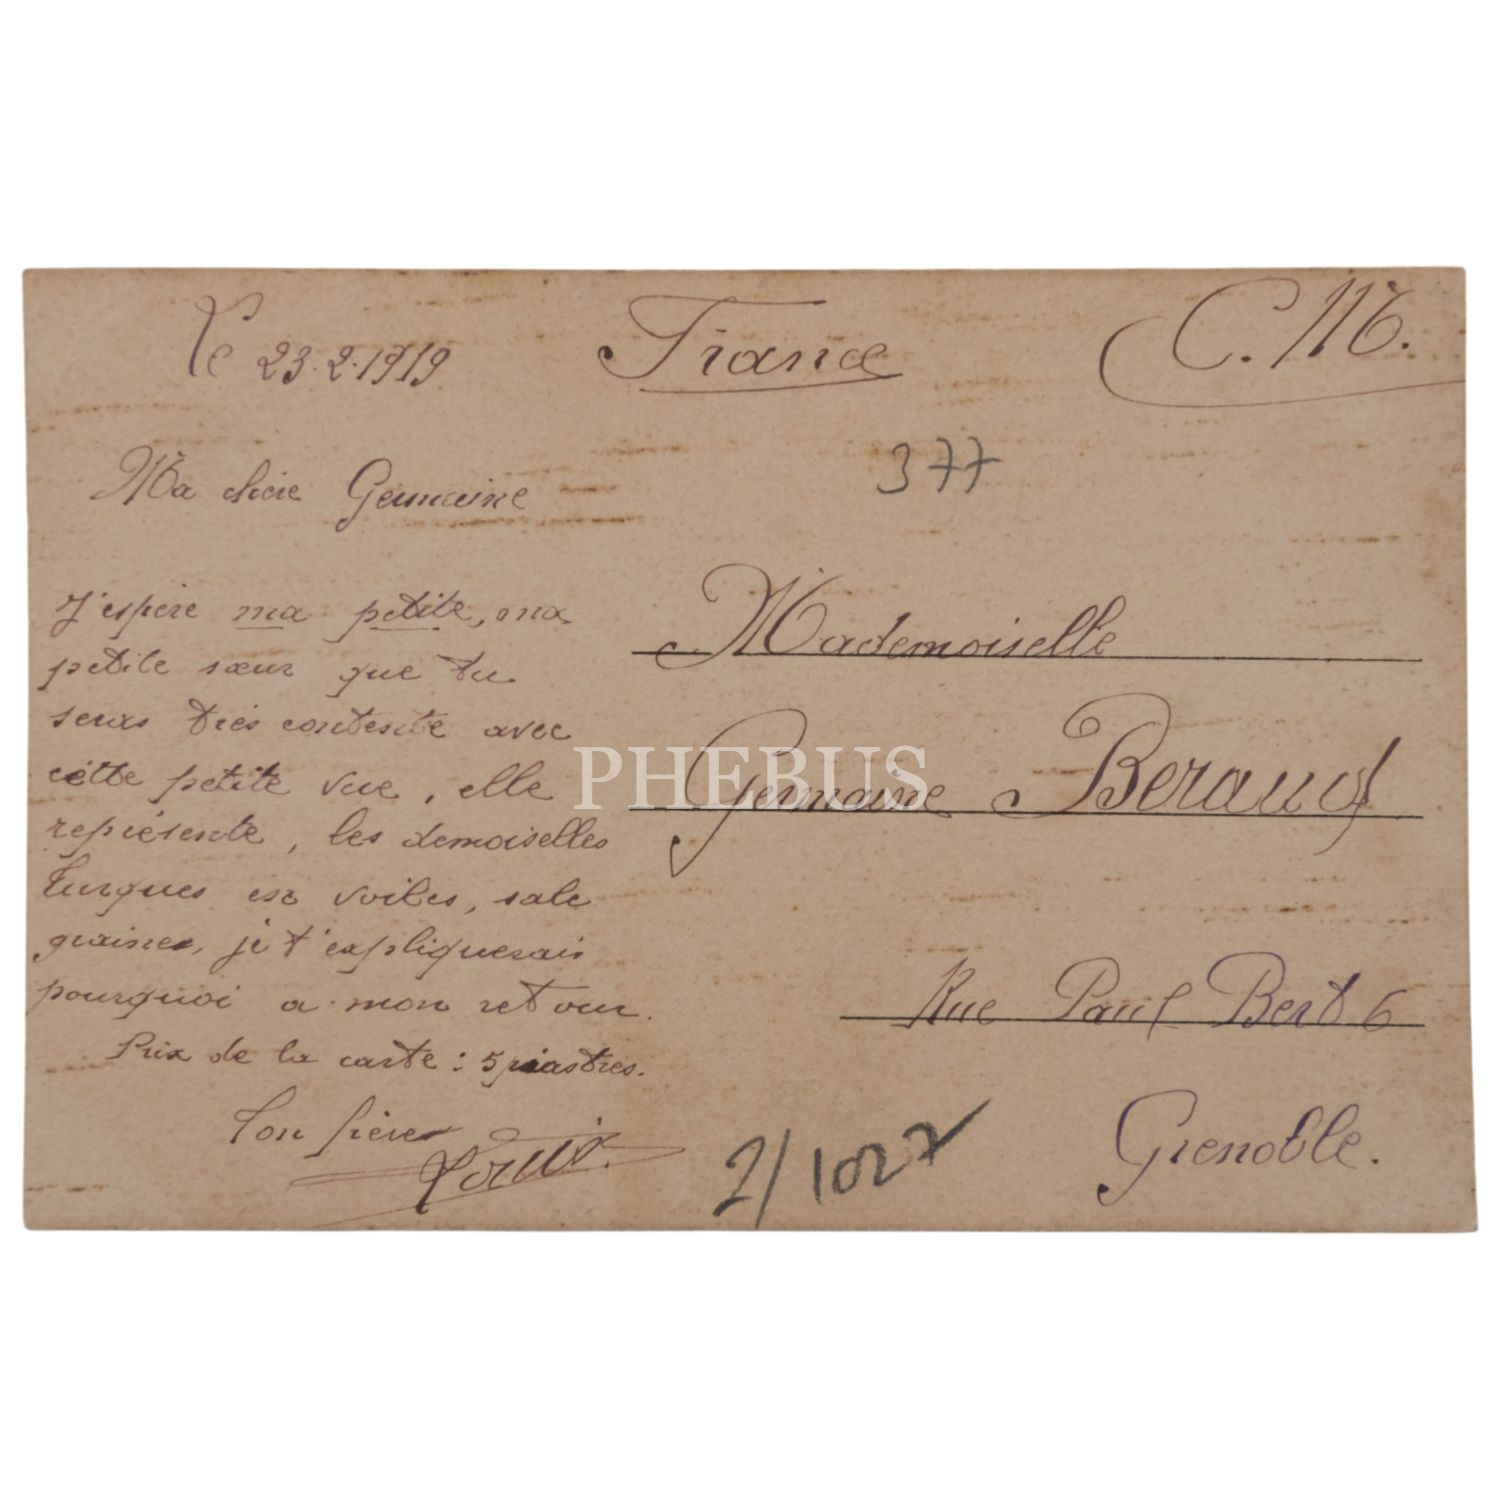 Le 23.2.1919
France
C.M.
377
Ma chère Germaine
J'espère ma petite, ma
petite sœur que tu
seras très contente avec
cette petite vue, elle
représente, les demoiselles
turques en voiles, sale
graine, je t'expliquerais
pourquoi a mon retour.
Prix de la carte : 5 piastres.
Ton frère
Louis.
Mademoiselle
Germaine Beraud
Rue Paul Bert 6
Grenoble.
2/1027
PHEBUS